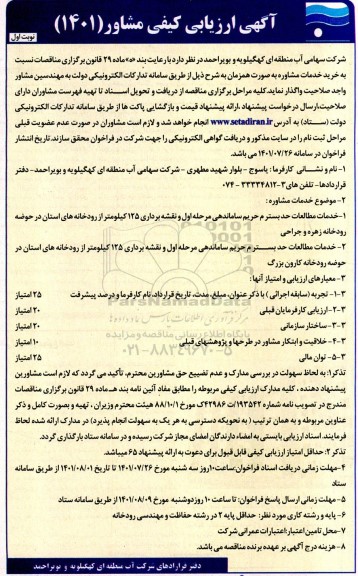 آگهی ارزیابی کیفی مشاور (۱۴۰۱)
نوبت اول
شرکت سهامی آب منطقه ای کهگیلویه و بویراحمد در نظر دارد با رعایت بند «ه» ماده ۲۹ قانون برگزاری مناقصات نسبت
به خرید خدمات مشاوره به صورت همزمان به شرح ذیل از طریق سامانه تدارکات الکترونیکی دولت به مهندسین مشاور
واجد صلاحیت واگذار نماید. کلیه مراحل برگزاری مناقصه از دریافت و تحویل اسناد تا تهیه فهرست مشاوران دارای
صلاحیت، ارسال درخواست پیشنهاد، ارائه پیشنهاد قیمت و بازگشایی پاکت ها از طریق سامانه تدارکات الکترونیکی
دولت (ستاد) به آدرس www.setadiran.ir انجام خواهد شد و لازم است مشاوران در صورت عدم عضویت قبلی
مراحل ثبت نام را در سایت مذکور و دریافت گواهی الکترونیکی را جهت شرکت در فراخوان محقق سازند. تاریخ انتشار
فراخوان در سامانه ۱۴۰۱/۰۷/۲۶ می باشد.
۱- نام و نشانی کارفرما: یاسوج - بلوار شهید مطهری - شرکت سهامی آب منطقه ای کهگیلویه و بویراحمد- دفتر
قراردادها- تلفن های ۳-۳۳۳۳۴۸۱۲ - ۰۷۴
۲- موضوع خدمات مشاوره:
۱- خدمات مطالعات حد بستر و حریم ساماندهی مرحله اول و نقشه برداری ۱۲۵ کیلومتر از رودخانه های استان در حوضه
رودخانه زهره و جراحی
۲- خدمات مطالعات حد بستر و حریم ساماندهی مرحله اول و نقشه برداری ۱۲۵ کیلومتر از رودخانه های استان در
حوضه رودخانه کارون بزرگ
۳- معیارهای ارزیابی و امتیاز آنها:
۳-۱- تجربه (سابقه اجرائی) با ذکر عنوان، مبلغ، مدت، تاریخ قرارداد، نام کارفرما و درصد پیشرفت ۲۵ امتیاز
۳-۲- ارزیابی کارفرمایان قبلی ۲۰ امتیاز
۳-۳- ساختار سازمانی ۲۰ امتیاز
۳-۴- خلاقیت و ابتکار مشاور در طرحها و پژوهشهای قبلی ۱۰ امتیاز
۳-۵- توان مالی ۲۵ امتیاز
تذکر۱: به لحاظ سهولت در بررسی مدارک و عدم تضییع حق مشاورین محترم، تأکید می گردد که لازم است مشاورین
پیشنهاد دهنده، کلیه مدارک ارزیابی کیفی مربوطه را مطابق مفاد آئین نامه بند هـ ماده ۲۹ قانون برگزاری مناقصات
مندرج در تصویب نامه شماره ۱۹۳۵۴۲/ت ۴۲۹۸۶ک مورخ ۸۸/۱۰/۱ هیئت محترم وزیران، تهیه و بصورت کامل و ذکر
عناوین مربوطه و به همان ترتیب (به نحویکه دسترسی به هر یک به سهولت انجام پذیرد) در مدارک ارائه شده لحاظ
فرمایند. اسناد ارزیابی بایستی به امضاء دارندگان امضای مجاز شرکت رسیده و در سامانه ستاد بارگذاری گردد.
تذکر ۲: حداقل امتیاز ارزیابی کیفی قابل قبول برای دعوت به ارائه پیشنهاد ۶۵ میباشد.
۴- مهلت زمانی دریافت اسناد فراخوان: ساعت ۱۰ روز سه شنبه مورخ ۱۴۰۱/۰۷/۲۶ تا تاریخ ۱۴۰۱/۰۸/۰۱ از طریق سامانه
ستاد
۵- مهلت زمانی ارسال پاسخ فراخوان: تا ساعت ۱۰ روز دوشنبه مورخ ۱۴۰۱/۰۸/۰۹ از طریق سامانه ستاد
۶- پایه و رشته کاری مورد نظر: حداقل پایه ۲ در رشته حفاظت و مهندسی رودخانه
۷- محل تامین اعتبار: اعتبارات عمرانی شرکت
۸- هزینه درج آگهی بر عهده برنده مناقصه می باشد.
دفتر قراردادهای شرکت آب منطقه ای کهگیلویه و بویراحمد
۰۲۱-۸۸۳۴۹۶۷۰-۵